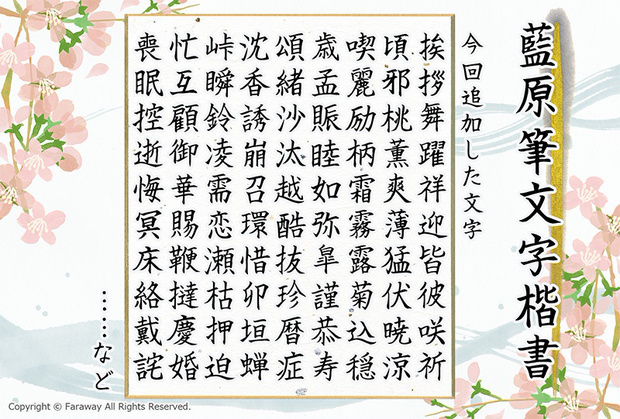 藍原筆文字楷書
今回追加した文字
挨拶舞躍祥迎皆彼咲祈
頃邪桃薫爽薄猛伏暁涼
喫麗励柄霜霧露菊込穏
歳孟賑睦如弥皐謹恭寿
頌緒沙汰越酷抜珍暦症
沈香誘崩召環惜卯垣蝉
峠瞬鈴凌需恋瀬枯押迫
忙互顧御華賜鞭撻慶婚
喪眠控逝悔冥床絡戴詫
……など
Copyright © Faraway All Rights Reserved.